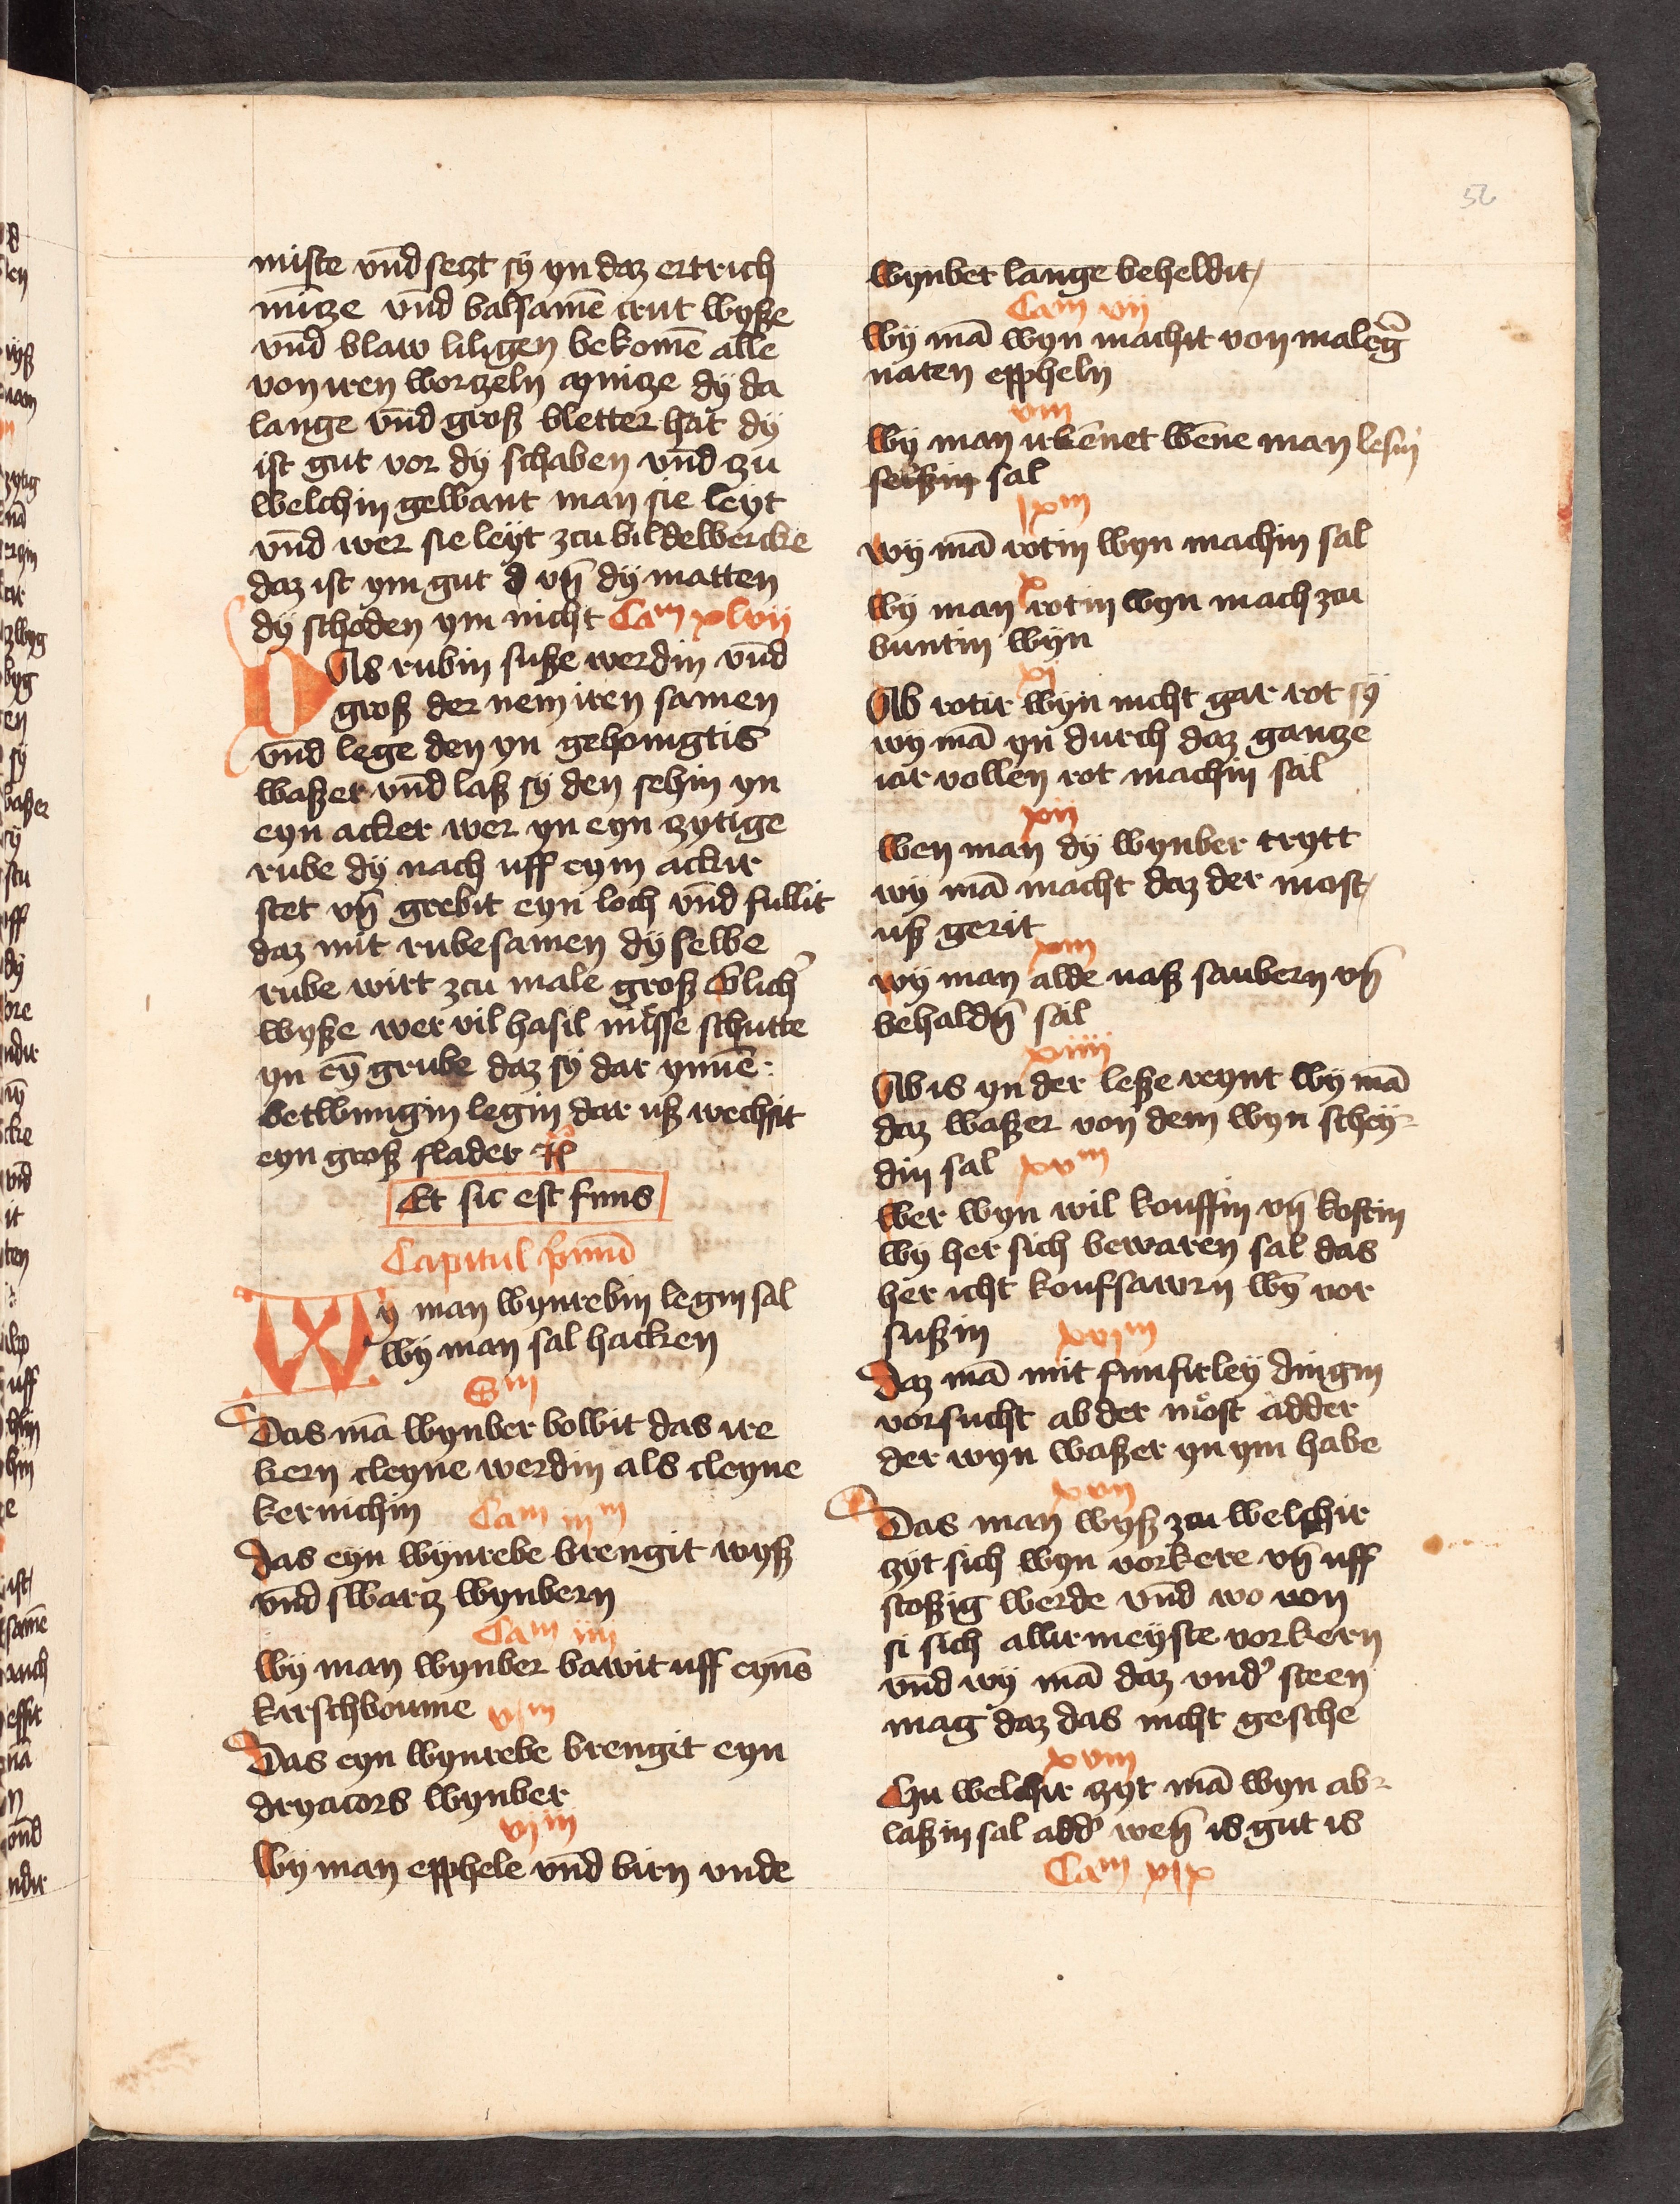 56
miste vnd setzt sy yn daz ertrich
mῑtze vnd balsamē crut wyße
vnd blaw liligen bekomē alle
von iren wortzeln mintze dÿ da
lange vnd groß bletter hat dÿ
ist gut vor dÿ schaben vnd zu
welchin gewant man sie leyt
vnd wer sie leyt zcu bildewercke
daz ist ym gut vn̄ dÿ matten
dÿ schoden ym nicht Cam xlvii
Das rubin suße werdin vnd
groß der nem iren samen
vnd lege den yn gehonigtis
waßer vnd laß sÿ den sehin yn
eyn acker wer yn eyn zytige
rube dÿ nach uff eym ackir
stet vn̄ grebit eyn loch vnd fullit
daz mit rubesamen dÿ selbe
rube wirt zcu male groß Glich
wyße wer vil hasil nüsse schutte
yn eȳ grube daz sÿ dar ynnē
betwungin legin dar uß wechsit
eyn groß flader
Et sic est finis
Capitul p̄mū
Wy man wynrebin legin sal
Wÿ man sal hacken
Das mā wynber bowit das ire
kern cleyne werdin als cleyne
kernichin Cam iiim
das eyn wÿnrebe brengit wyß
vnd swartz wynbern
Cam iiii
Wÿ man wynber bawit uff eynē
kirschboume vm
Das eyn wynrebe brengit eyn
dryacors wynber
vim
Wÿ man epphele vnd birn vnde
wynber lange beheldit
Cam vii
Wÿ mā wyn machit von maleg
naten eppheln
viii
Wÿ man irkēnet wēne man lesin
sal
ixm
wÿ mā rotin wyn machin sal
x
Wÿ man rotin wyn mach zcu
buntin wÿn
xi
Ab rotir wÿn nicht gar rot sÿ
wÿ mā yn durch daz gantze
iar vollen rot machin sal
xii
Wen man dÿ wynber trytt
wÿ mā macht daz der most
uß gerit
xiii
wÿ man alde vaß saubern vn̄
behaldn̄ sal
xiiii
Ab is yn der leße reynt wÿ mā
daz waßer von dem wyn schey-
din sal xvm
Wer wyn wil kouffin vn̄ kostin
wÿ her sich bewaren sal das
her icht koufsawrn wȳ vor
sußin xvim
Daz mā mit funfirleÿ dingin
vorsucht ab der most adder
der wyn waßer yn ym habe
xvii
Das man wyß zcu welchir
zyt sich wyn vorkere vn̄ uff
stoßig werde vnd wo von
si sich allirmeÿste vorkern
vnd wÿ mā daz vnd' steen
mag daz das nicht gesche
xviii
Czu welchir zyt mā wyn ab-
laßin sal add' wen̄ is gut is
Cam xix